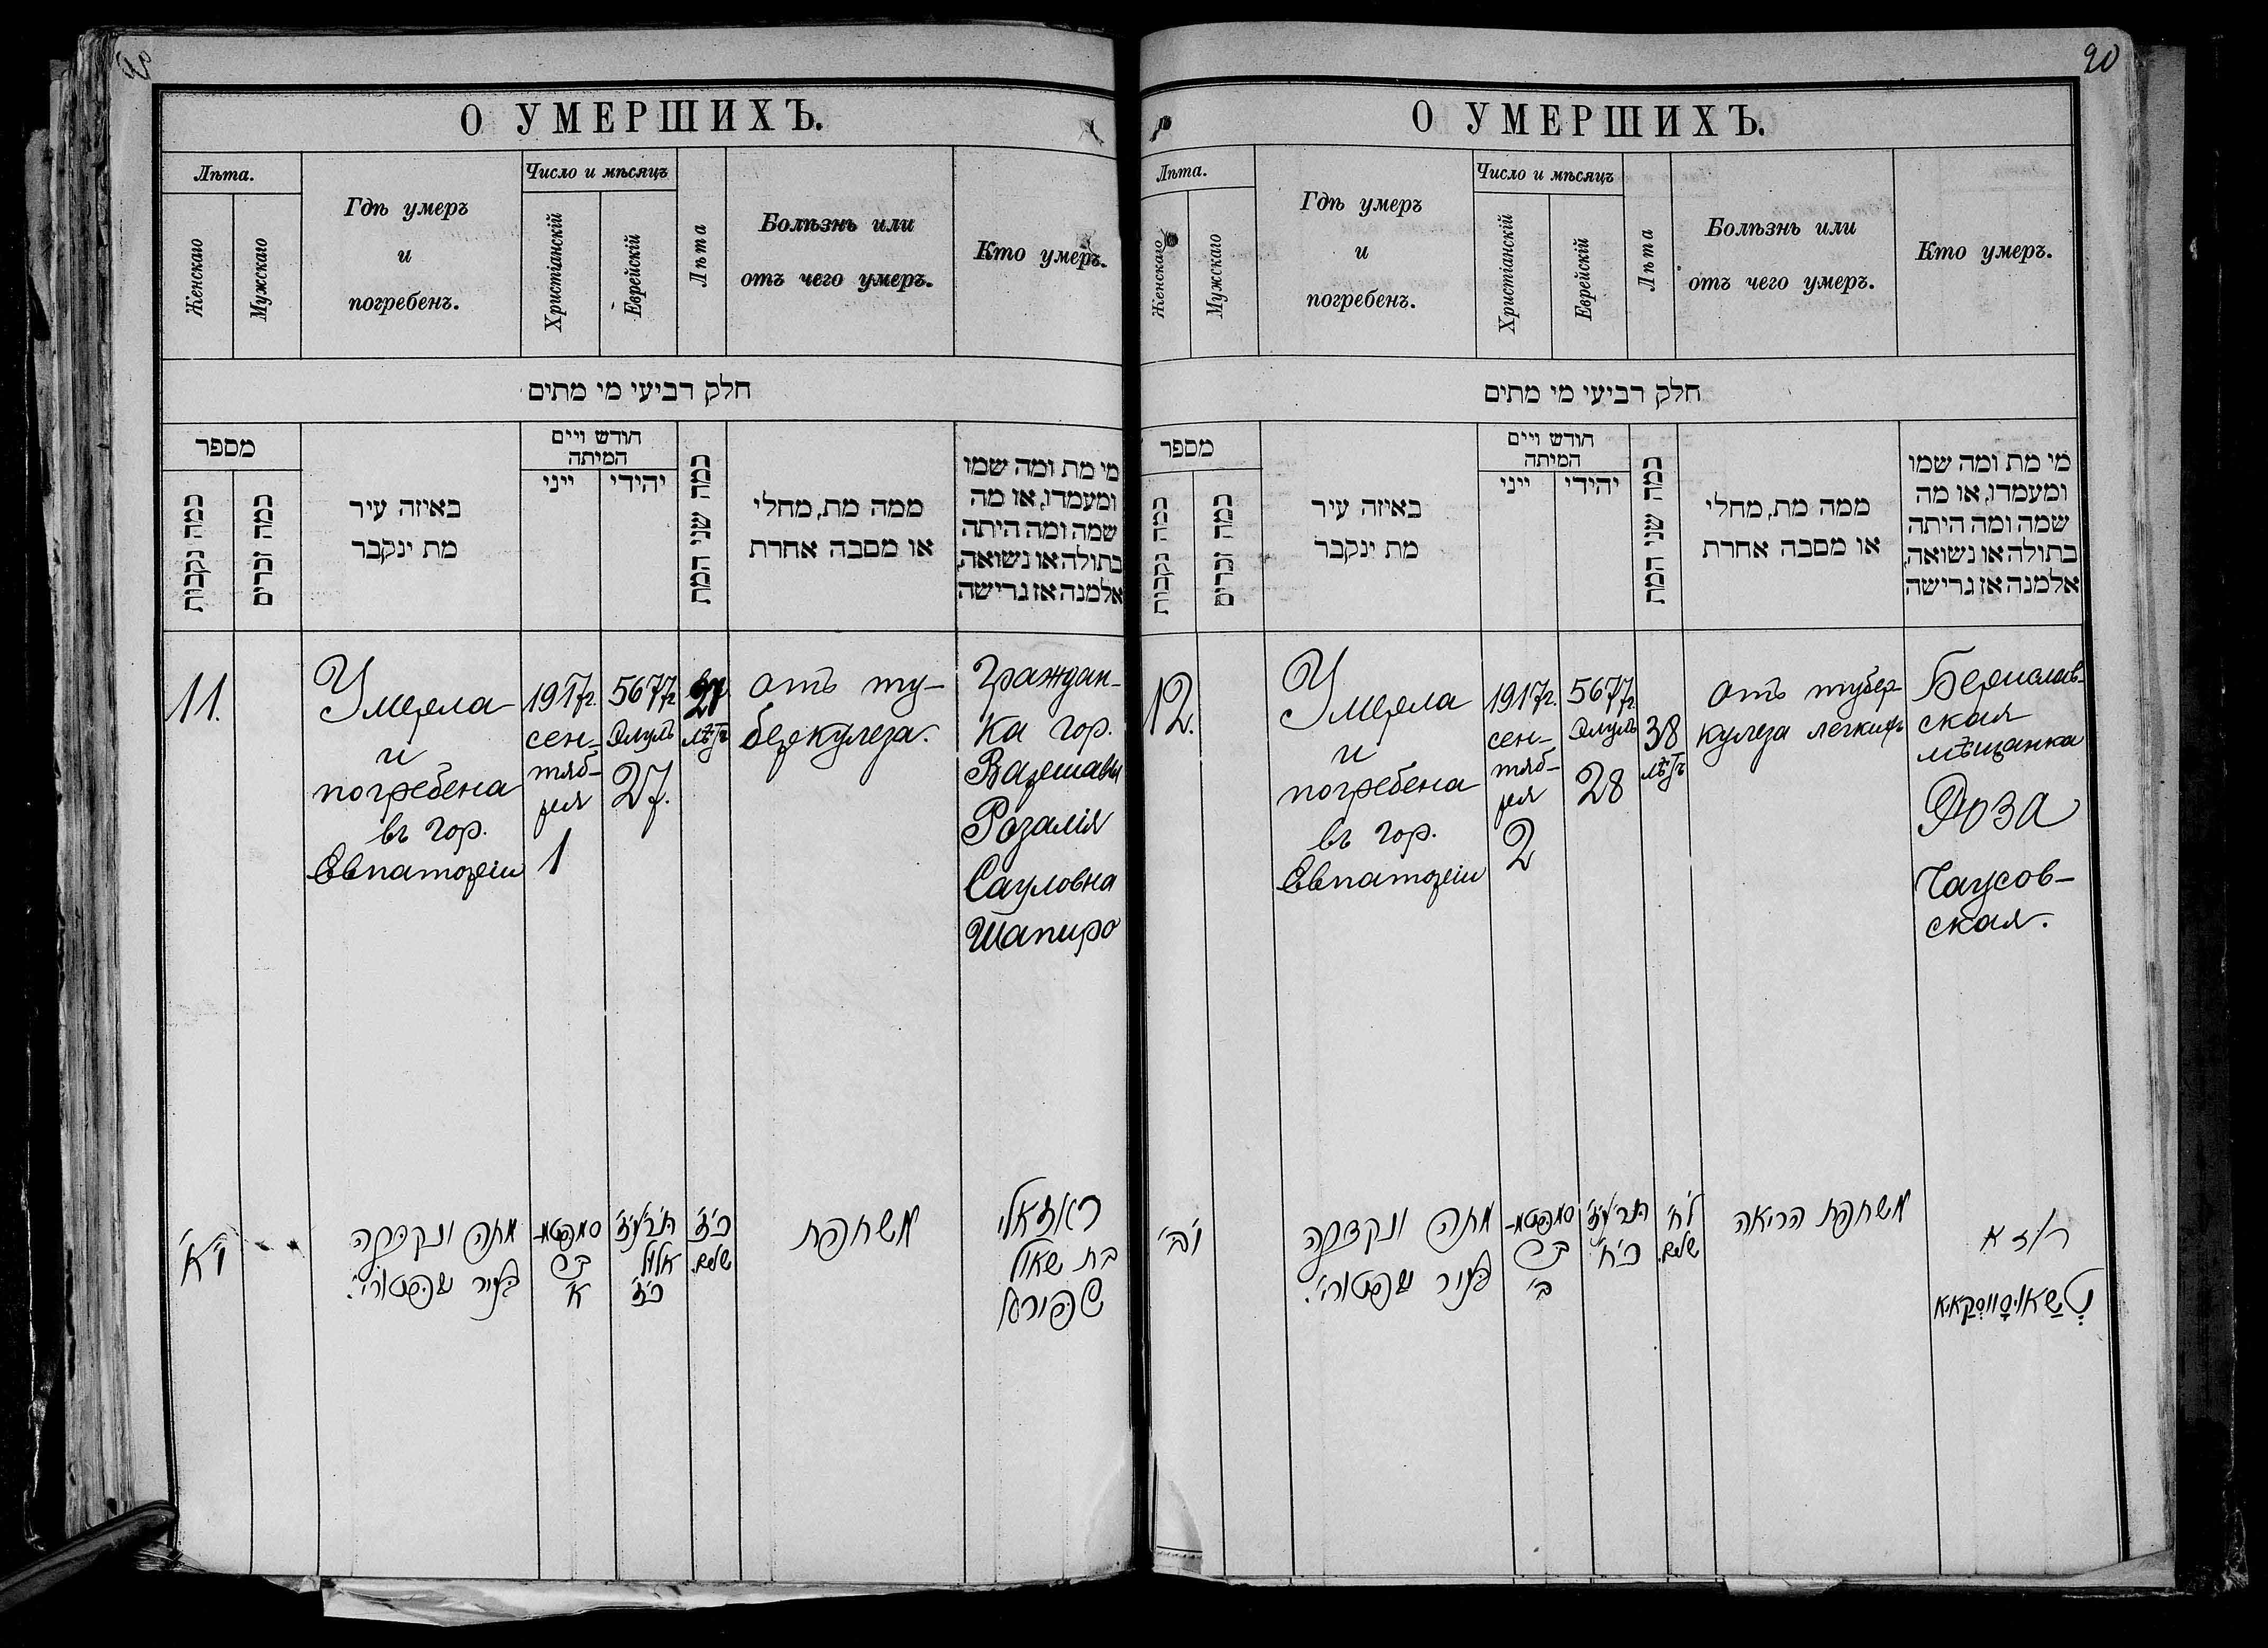 20
О УМЕРШИХЪ.
Лѣта.
Женскаго
Мужскаго
Гдѣ умеръ
и
погребенъ.
Число и мѣсяцъ
Христіанскій
Еврейскій
Лѣта
Болѣзнь или
отъ чего умеръ.
Кто умеръ.
חלק רביעי מי מתים
מספר
כמה נקבות
כמה זכרים
באיזה עיר
מת ינקבר
חודש ויים
המיתה
ייני
יהידי
כמה שני המת
ממה מת, מחלי
או מסבה אחרת
מי מת ומה שמו
ומעמדו, או מה
שמה ומה היתה
בתולה או נשואה,
אלמנה אז גרישה
11.
Умерла
и
погребена
въ гор.
Евпаторіи
1917г.
сен-
тяб-
ря
1
5677г
Элулъ
27.
27
лѣтъ
отъ ту-
беркулеза.
Граждан-
ка гор.
Варшавы
Розалія
Сауловна
Шапиро
י"א
מתה ונקברה
בעיר
סעפטמ-
בר
א'
תרע"ז
אלול
כ"ז
כ"ז
שנים.
משחפת
ראזאלי
בת שאול
שפירא
О УМЕРШИХЪ.
Лѣта.
Женскаго
Мужскаго
Гдѣ умеръ
и
погребенъ.
Число и мѣсяцъ
Христіанскій
Еврейскій
Лѣта
Болѣзнь или
отъ чего умеръ.
Кто умеръ.
חלק רביעי מי מתים
מספר
כמה נקבות
כמה זכרים
באיזה עיר
מת ינקבר
חודש ויים
המיתה
ייני
יהידי
כמה שני המת
ממה מת, מחלי
או מסבה אחרת
מי מת ומה שמו
ומעמדו, או מה
שמה ומה היתה
בתולה או נשואה,
אלמנה אז גרישה
12.
Умерла
и
погребена
въ гор.
Евпаторіи
1917г.
сен-
тяб-
ря
2
5677г
Элулъ
28
38
лѣтъ
отъ тубер-
кулеза легкихъ
Бериславъ-
ская
мѣщанка
Роза
Чаусов-
ская.
י"ב
מתה ונקברה
בעיר
סעפטמ-
בר
ב'
תרע"ז
כ"ח
ל"ח
שנים.
משחפת הריאה
רוזא
טשאוסווסקאיא